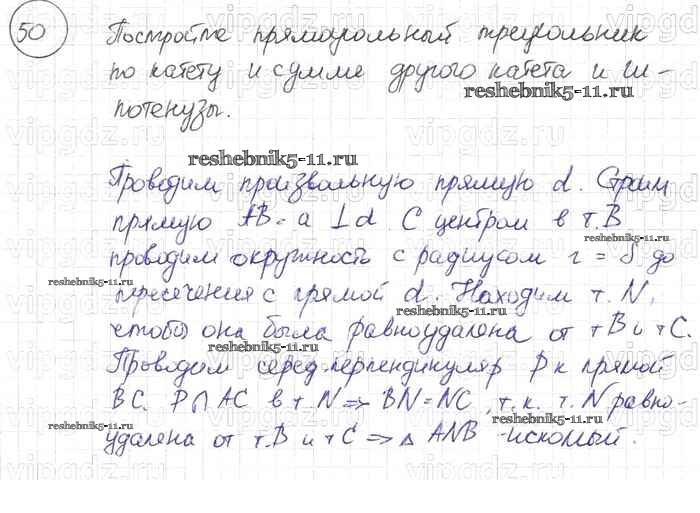 50
Постройте прямоугольный треугольник
по катету и сумме другого катета и ги-
reshebnik5-11.ru
потенузы.
reshebnik5-11.ru
Проводим произвольную прямую d. Строим
прямую AB = a ⊥ d. С центром в т. B
проводим окружность с радиусом r = S до
reshebnik5-11.ru
reshebnik5-11.ru
пересечения с прямой d. Находим т. N,
reshebnik5-11.ru
чтобы она была равноудалена от т B и т C.
reshebnik5-11.ru
Проводим серед. перпендикуляр P к прямой
BC. P ∩ AC в т N ⇒ BN = NC, т. к. т. N равно-
reshebnik5-11.ru
reshebnik5-11.ru
удалена от т. B и т C ⇒ △ ANB - искомый.